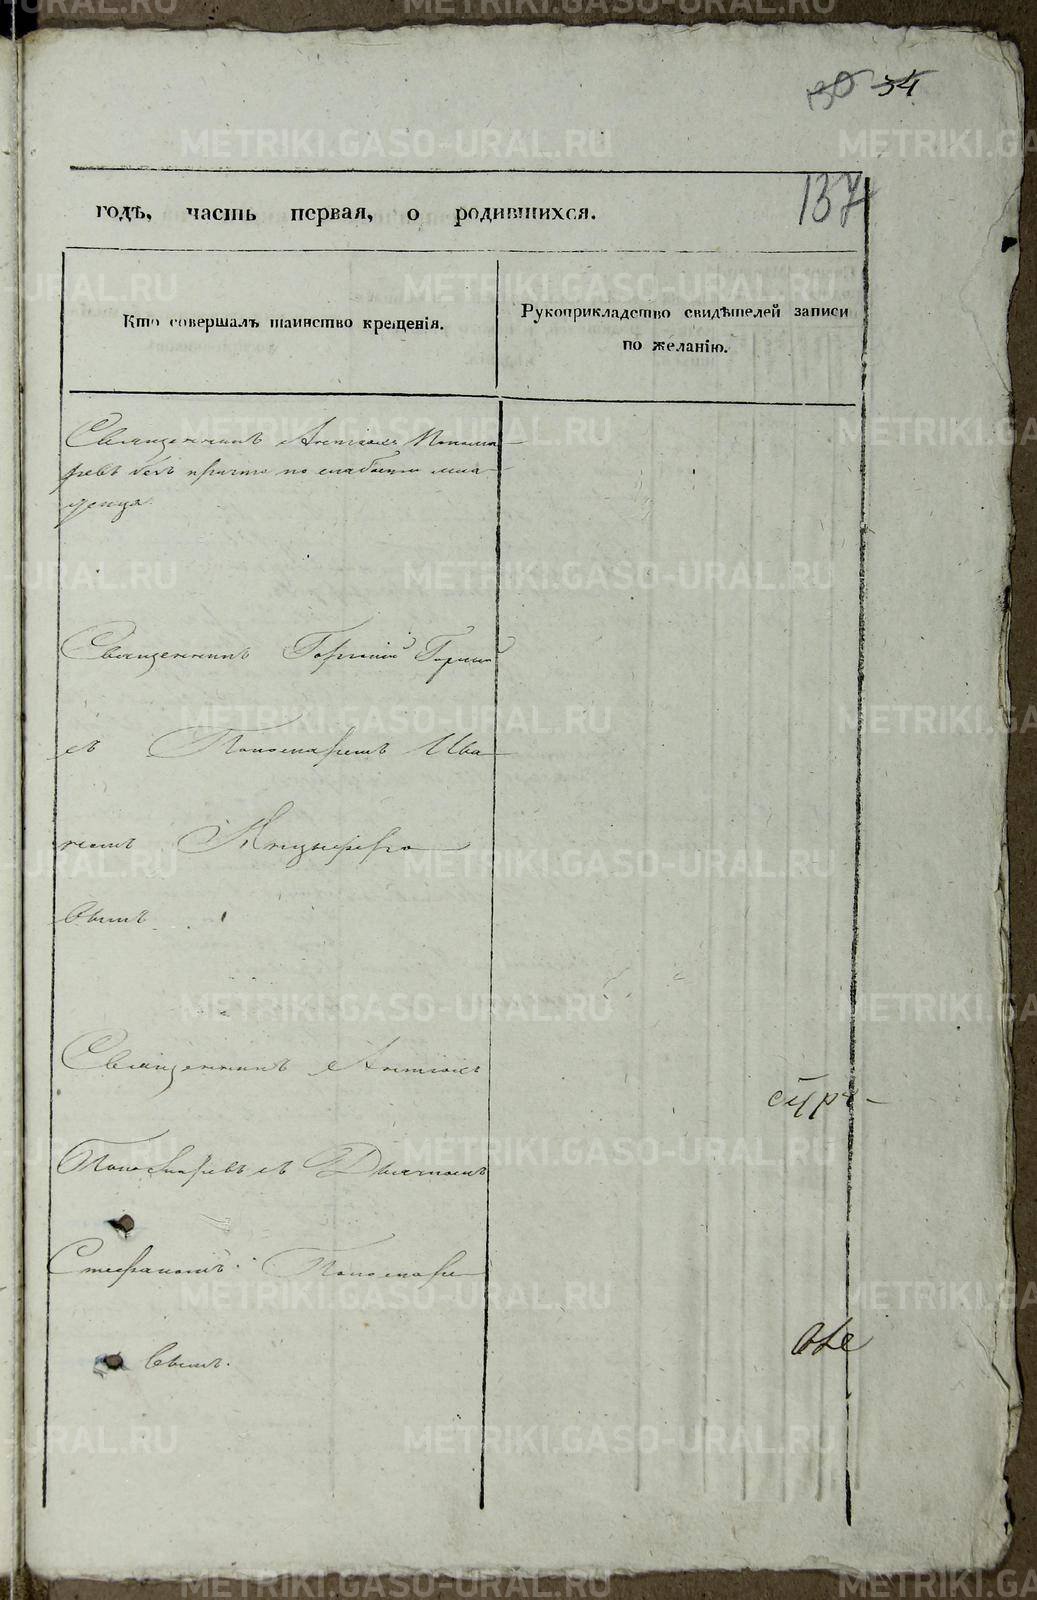 30 34
137
годѣ, часть первая, о родившихся.
Кто совершалъ таинство крещенія.
Рукоприкладство свидѣтелей записи
по желанію.
Священникъ Антоній Понома-
ревъ безъ причта по слабости мла-
денца.
Священникъ Георгій
съ Пономаремъ Ива-
номъ Анцыферо-
вымъ
Священникъ Антоній
Пономаревъ съ Дьячкомъ
Стефаномъ Пономаре-
вымъ.
METRIKI.GASO-URAL.RU